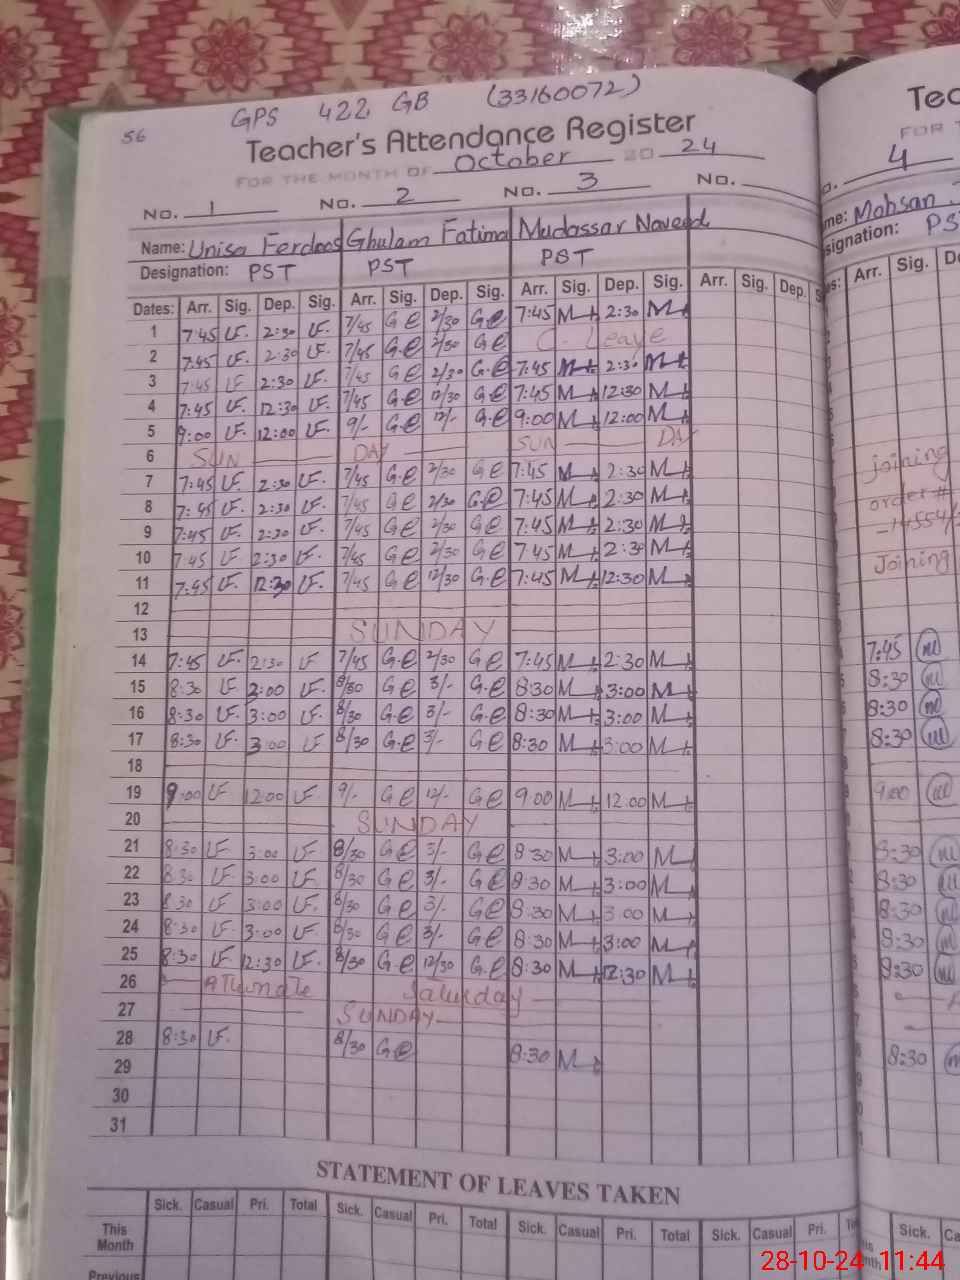 56 GPS 422 GB (33160072)
Teacher's Attendance Register
FOR THE MONTH OF October 20 24
No. 1 No. 2 No. 3 No.
Name: Unisa Ferdoos Ghulam Fatima Mudassar Naveed
Designation: PST PST PST
Dates: Arr. Sig. Dep. Sig. Arr. Sig. Dep. Sig. Arr. Sig. Dep. Sig. Arr. Sig. Dep. S
1 7:45 UF. 2:30 UF. 7/45 G e 2/30 G e 7:45 M 2:30 M
2 7:45 UF. 2:30 UF. 7/45 G.e 2/30 G e C. Leave
3 7:45 UF 2:30 UF. 7/45 G e 2/30 G.e 7:45 M 2:30 M
4 7:45 UF. 12:30 UF. 7/45 G.e 12/30 G e 7:45 M 12:30 M
5 9:00 UF. 12:00 UF. 9/- G e 12/- G.e 9:00 M 12:00 M
6 SUN DAY SUN DA
7 7:45 UF. 2:30 UF. 7/45 G.e 2/30 G e 7:45 M 2:30 M
8 7:45 UF. 2:30 UF. 7/45 G e 2/30 G.e 7:45 M 2:30 M
9 7:45 UF. 2:30 UF. 7/45 G e 2/30 G e 7:45 M 2:30 M
10 7:45 UF. 2:30 UF. 7/45 G e 2/30 G e 7 45 M 2:30 M
11 7:45 UF. 12:30 UF. 7/45 G e 12/30 G.e 7:45 M 12:30 M
12
13 SUNDAY
14 7:45 UF. 2:30 UF 7/45 G.e 2/30 G e 7:45 M 2:30 M
15 8:30 UF 2:00 UF. 8/30 G e 3/- G.e 8:30 M 3:00 M
16 8:30 UF. 3:00 UF. 8/30 G.e 3/- G e 8:30 M 3:00 M
17 8:30 UF. 3:00 UF 8/30 G.e 3/- G e 8:30 M 3:00 M
18
19 9:00 UF 12:00 UF. 9/- G e 12/- G e 9:00 M 12:00 M
20 SUNDAY
21 8:30 UF 3:00 UF 8/30 G e 3/- G e 8 30 M 3:00 M
22 8:30 UF 3:00 UF. 8/30 G e 3/- G e 8:30 M 3:00 M
23 8:30 UF 3:00 UF. 8/30 G e 3/- G e 8:30 M 3:00 M
24 8:30 UF 3:00 UF. 8/30 G e 3/- G e 8:30 M 3:00 M
25 8:30 UF. 12:30 UF. 8/30 G.e 12/30 G.e 8:30 M 12:30 M
26 Alternate Saturday
27 SUNDAY
28 8:30 UF. 8/30 G e 8:30 M
29
30
31
STATEMENT OF LEAVES TAKEN
Sick. Casual Pri. Total Sick. Casual Pri. Total Sick. Casual Pri. Total Sick. Casual Pri.
This Month
Previous
Tec
FOR
4
me: Mohsan
signation: PS
Arr. Sig. De
joining
order #
14554/
Joining
7:45
8:30
8:30
8:30
9:00
8:30
8:30
8:30
8:30
8:30
8:30
Sick. Ca
28-10-24 11:44